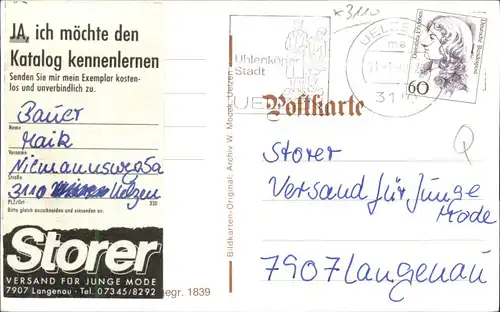 JA, ich möchte den
Katalog kennenlernen
Senden Sie mir mein Exemplar kosten-
los und unverbindlich zu.
Bauer
Name
Maik
Vorname
Niemannsweg 5a
Straße
3110 Uelzen
PLZ/Ort 330
Bitte gleich ausschneiden und einsenden an:
Storer
VERSAND FÜR JUNGE MODE
7907 Langenau · Tel. 07345/8292
gegr. 1839
Bildkarten-Original: Archiv W. Mocek, Uelzen
*3110
Uhlenköper
Stadt
UELZEN
311
Dorothea Erxleben
Deutsche Bundespost
60
Postkarte
Storer
Versand für junge
Mode
7907 Langenau